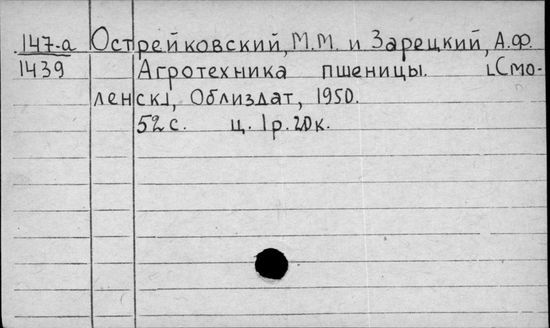 147-а Острейковский, М.М. и Зарецкий, А.Ф.
1439 Агротехника пшеницы. [Смо-
ленск], Облиздат, 1950.
52 с. ц. 1 р. 20 к.